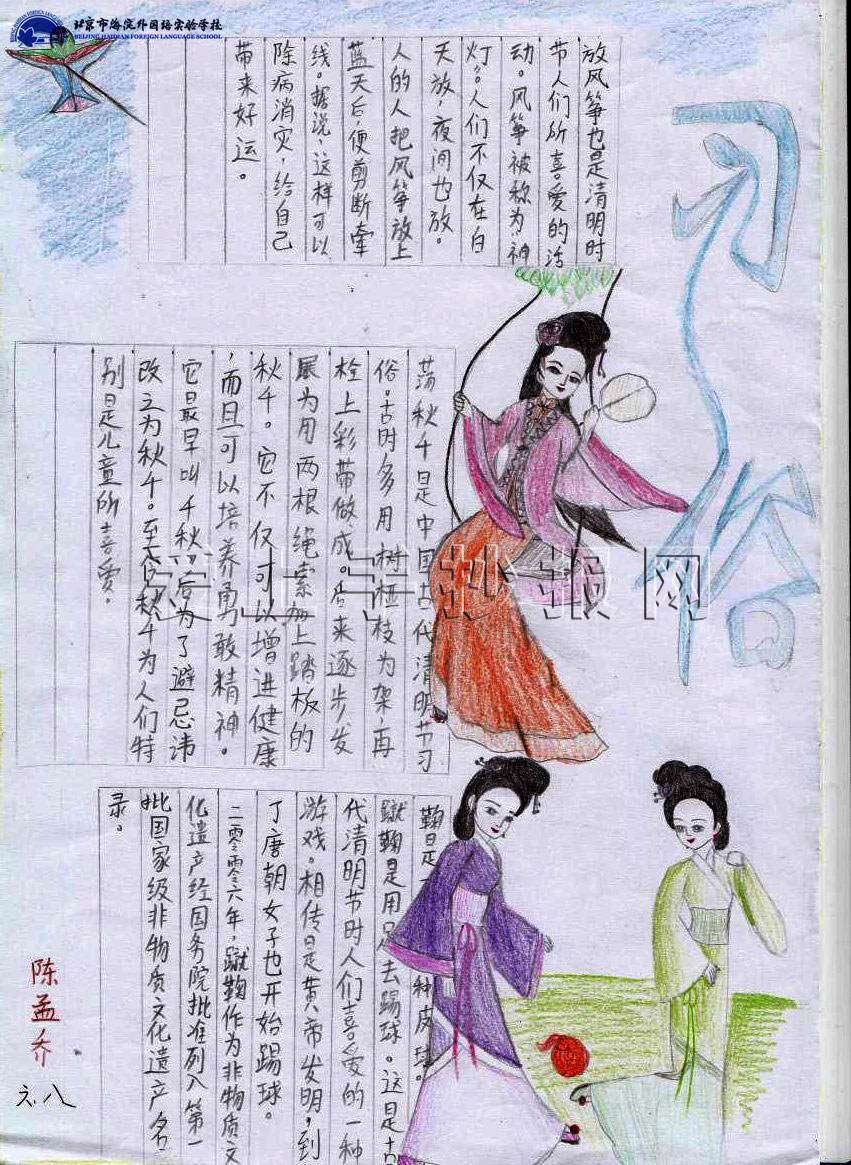 北京市海淀外国语实验学校
BEIJING HAIDIAN FOREIGN LANGUAGE SCHOOL
习俗
放风筝也是清明时
节人们所喜爱的活
动。风筝被称为“神
灯”。人们不仅在白
天放，夜间也放。
人的人把风筝放上
蓝天后，便剪断牵
线。据说，这样可以
除病消灾，给自己
带来好运。
荡秋千是中国古代清明节习
俗。古时多用树桠枝为架，再
栓上彩带做成。后来逐步发
展为用两根绳索加上踏板的
秋千。它不仅可以增进健康
，而且可以培养勇敢精神。
它最早叫千秋，后为了避忌讳
改之为秋千。至今，秋千为人们特
别是儿童所喜爱。
鞠是一种皮球。
蹴鞠是用足去踢球。这是古
代清明节时人们喜爱的一种
游戏。相传是黄帝发明，到
了唐朝女子也开始踢球。
二零零六年，蹴鞠作为非物质文
化遗产经国务院批准列入第一
批国家级非物质文化遗产名
录。
陈孟乔
六.八
手抄报网